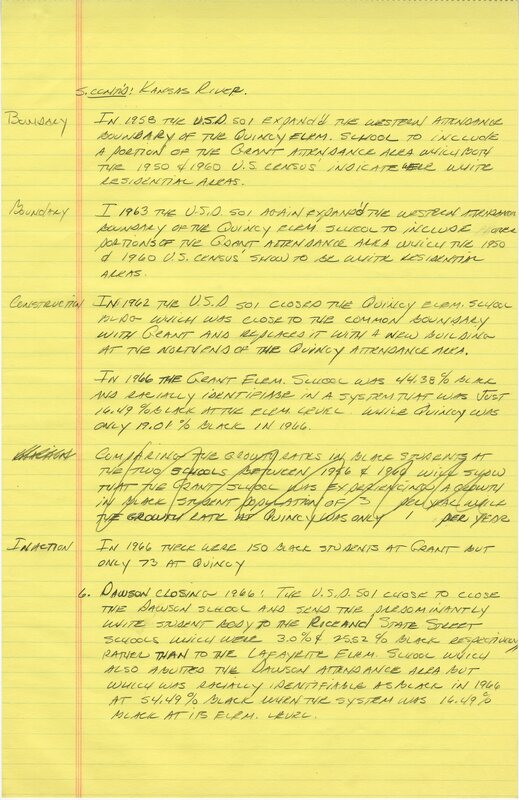 5. CONT'D: KANSAS RIVER.
BOUNDARY IN 1958 THE U.S.D. 501 EXPAND'D THE WESTERN ATTENDANCE
BOUNDARY OF THE QUINCY ELEM. SCHOOL TO INCLUDE
A PORTION OF THE GRANT ATTENDANCE AREA WHICH BOTH
THE 1950 & 1960 U.S. CENSUS' INDICATE WERE WHITE
RESIDENTIAL AREAS.
BOUNDARY I 1963 THE U.S.D. 501 AGAIN EXPAND'D THE WESTERN ATTENDANCE
BOUNDARY OF THE QUINCY ELEM SCHOOL TO INCLUDE
PORTIONS OF THE GRANT ATTENDANCE AREA WHICH THE 1950
& 1960 U.S. CENSUS' SHOW TO BE WHITE RESIDENTIAL
AREAS.
CONSTRUCTION IN 1962 THE U.S.D 501 CLOSED THE QUINCY ELEM. SCHOOL
BLDG WHICH WAS CLOSE TO THE COMMON BOUNDARY
WITH GRANT AND REPLACES IT WITH A NEW BUILDING
AT THE NORTH END OF THE QUINCY ATTENDANCE AREA.
IN 1966 THE GRANT ELEM. SCHOOL WAS 44.38% BLACK
AND RACIALLY IDENTIFIABLE IN A SYSTEM THAT WAS JUST
16.49 % BLACK AT THE ELEM LEVEL. WHILE QUINCY WAS
ONLY 19.01 % BLACK IN 1966.
COMPARING THE GROWTH RATES IN BLACK STUDENTS AT
THE TWO SCHOOLS BETWEEN 1956 & 1966 WILL SHOW
THAT THE GRANT SCHOOL WAS EXPERIENCING A GROWTH
IN BLACK STUDENT POPULATION OF 3 PER YEAR WHILE
THE GROWTH RATE AT QUINCY WAS ONLY 1 PER YEAR
INACTION IN 1966 THERE WERE 150 BLACK STUDENTS AT GRANT BUT
ONLY 73 AT QUINCY
6. DAWSON CLOSING 1966: THE U.S.D. 501 CHOSE TO CLOSE
THE DAWSON SCHOOL AND SEND THE PREDOMINANTLY
WHITE STUDENT BODY TO THE RICE AND STATE STREET
SCHOOLS WHICH WERE 3.0% & 25.52 % BLACK RESPECTIVELY
RATHER THAN TO THE LAFAYETTE ELEM. SCHOOL WHICH
ALSO ABUTTED THE DAWSON ATTENDANCE AREA BUT
WHICH WAS RACIALLY IDENTIFIABLE AS BLACK IN 1966
AT 54.49 % BLACK WHEN THE SYSTEM WAS 16.49%
BLACK AT ITS ELEM. LEVEL.